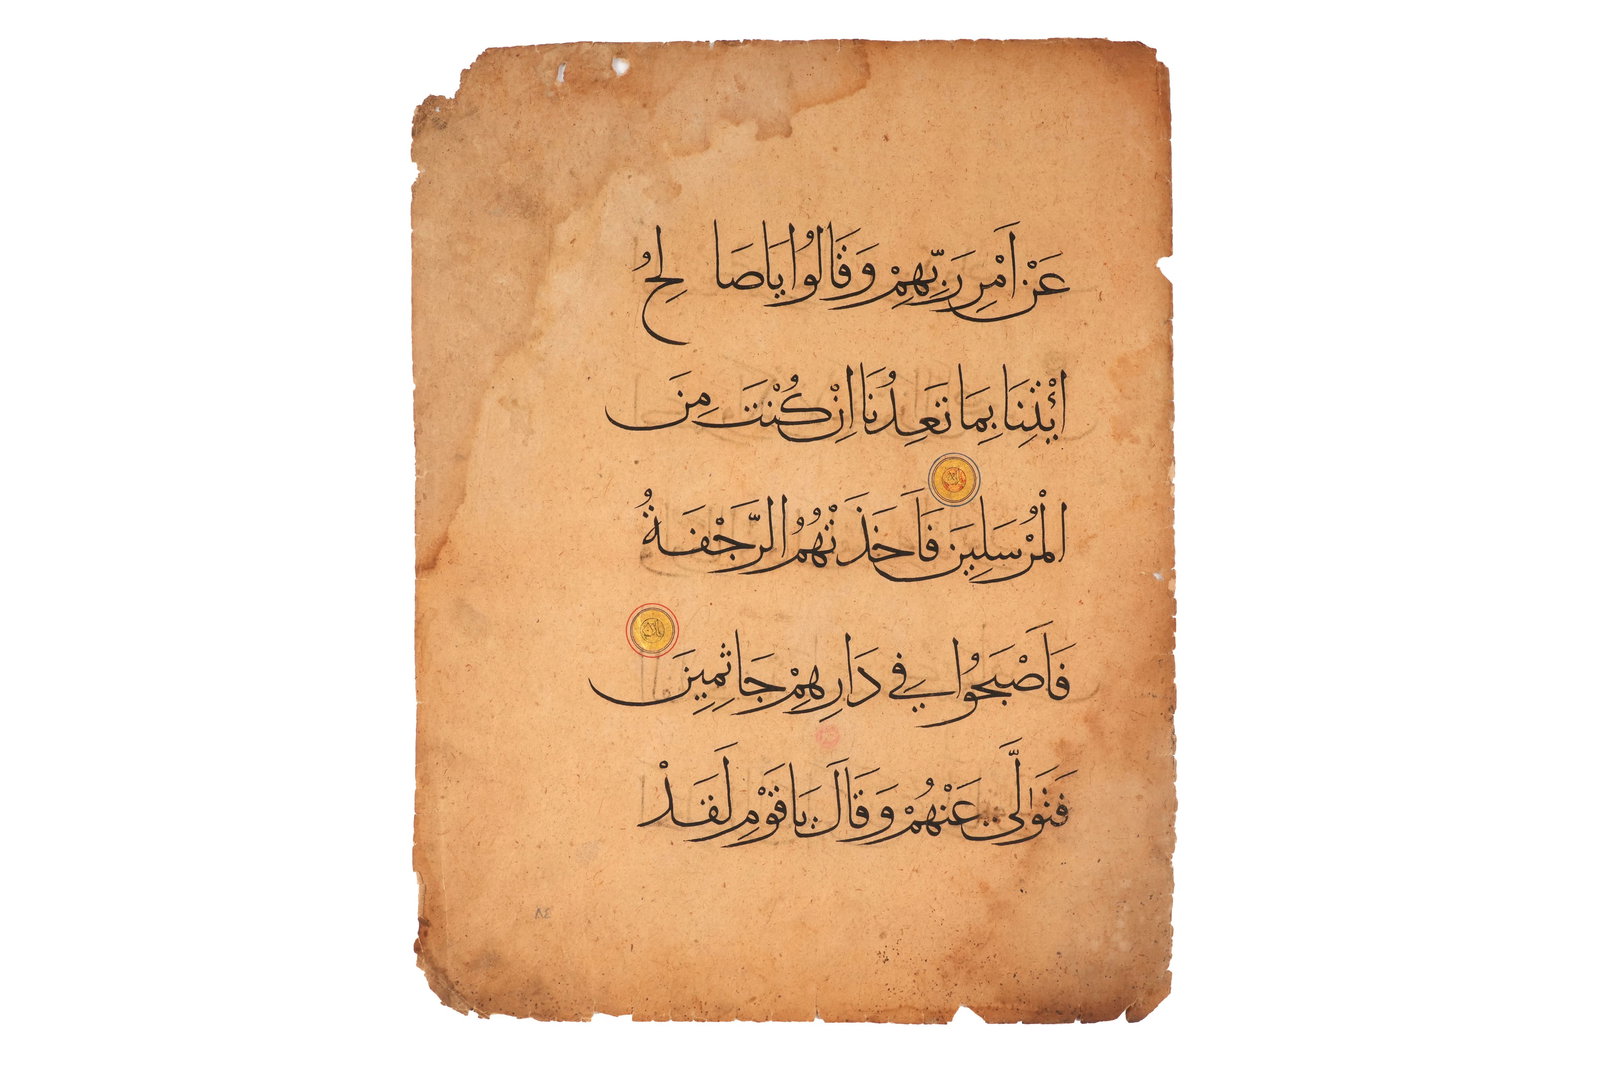 عَنْ اَمْرِ رَبِّهِمْ وَقَالُوا يَاصَا لِحُ
ائْتِنَا بِمَا تَعِدُنَا اِنْ كُنْتَ مِنَ
الْمُرْسَلِينَ فَاَخَذَتْهُمُ الرَّجْفَةُ
فَاَصْبَحُوا فِي دَارِهِمْ جَاثِمِينَ
فَتَوَلّٰى عَنْهُمْ وَقَالَ يَا قَوْمِ لَقَدْ
٨٤